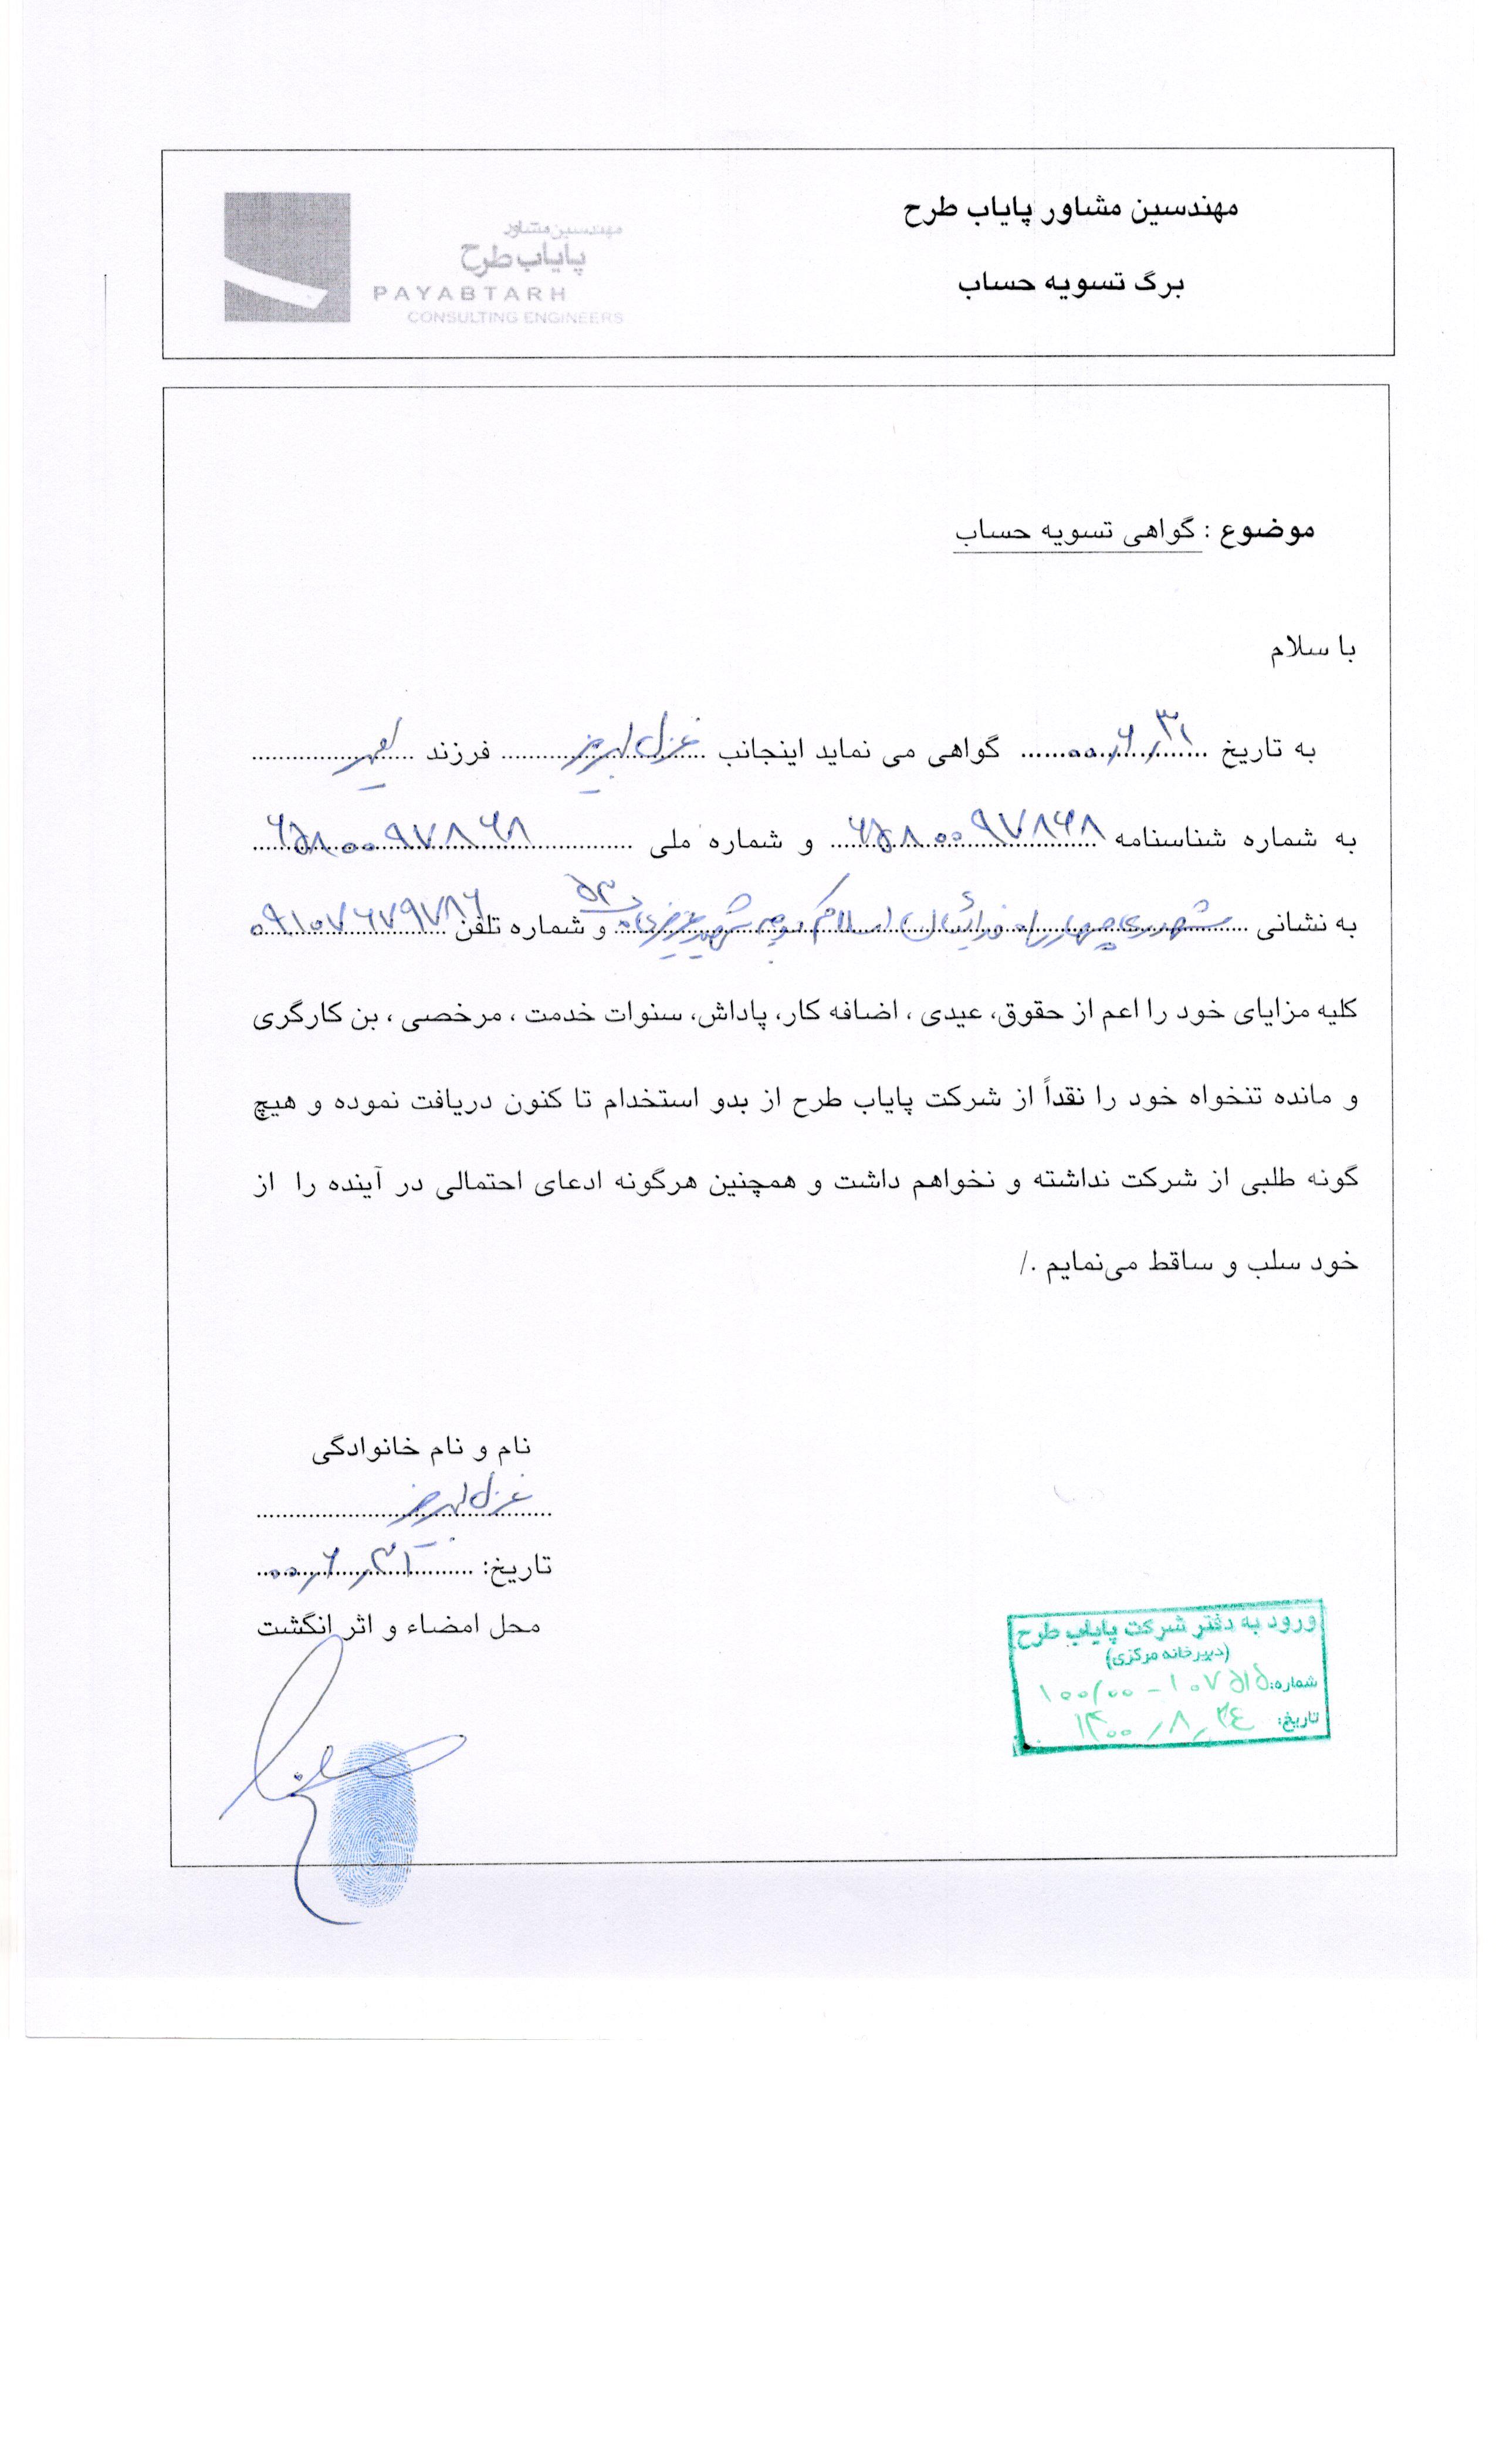 مهندسین مشاور پایاب طرح
برگ تسویه حساب
مهندسین مشاور
پایاب طرح
PAYABTARH
CONSULTING ENGINEERS
موضوع : گواهی تسویه حساب
با سلام
به تاریخ ۰۰/۶/۳۱ گواهی می نماید اینجانب غزل لبریز فرزند
به شماره شناسنامه ۶۵۸۰۰۹۷۸۶۸ و شماره ملی ۶۵۸۰۰۹۷۸۶۸
به نشانی شهرری چهارراه فدائیان اسلام کوچه شهید و شماره تلفن ۰۹۱۰۷۶۷۹۷۸۶
کلیه مزایای خود را اعم از حقوق، عیدی ، اضافه کار، پاداش، سنوات خدمت ، مرخصی ، بن کارگری
و مانده تنخواه خود را نقداً از شرکت پایاب طرح از بدو استخدام تا کنون دریافت نموده و هیچ
گونه طلبی از شرکت نداشته و نخواهم داشت و همچنین هرگونه ادعای احتمالی در آینده را از
خود سلب و ساقط می‌نمایم ./
نام و نام خانوادگی
غزل لبریز
تاریخ: ۰۰/۶/۳۱
محل امضاء و اثر انگشت
ورود به دفتر شرکت پایاب طرح
(دبیرخانه مرکزی)
شماره: ۱۰۰/۰۰ - ۱۰۷۵۱۵
تاریخ: ۱۴۰۰/۸/۲۴